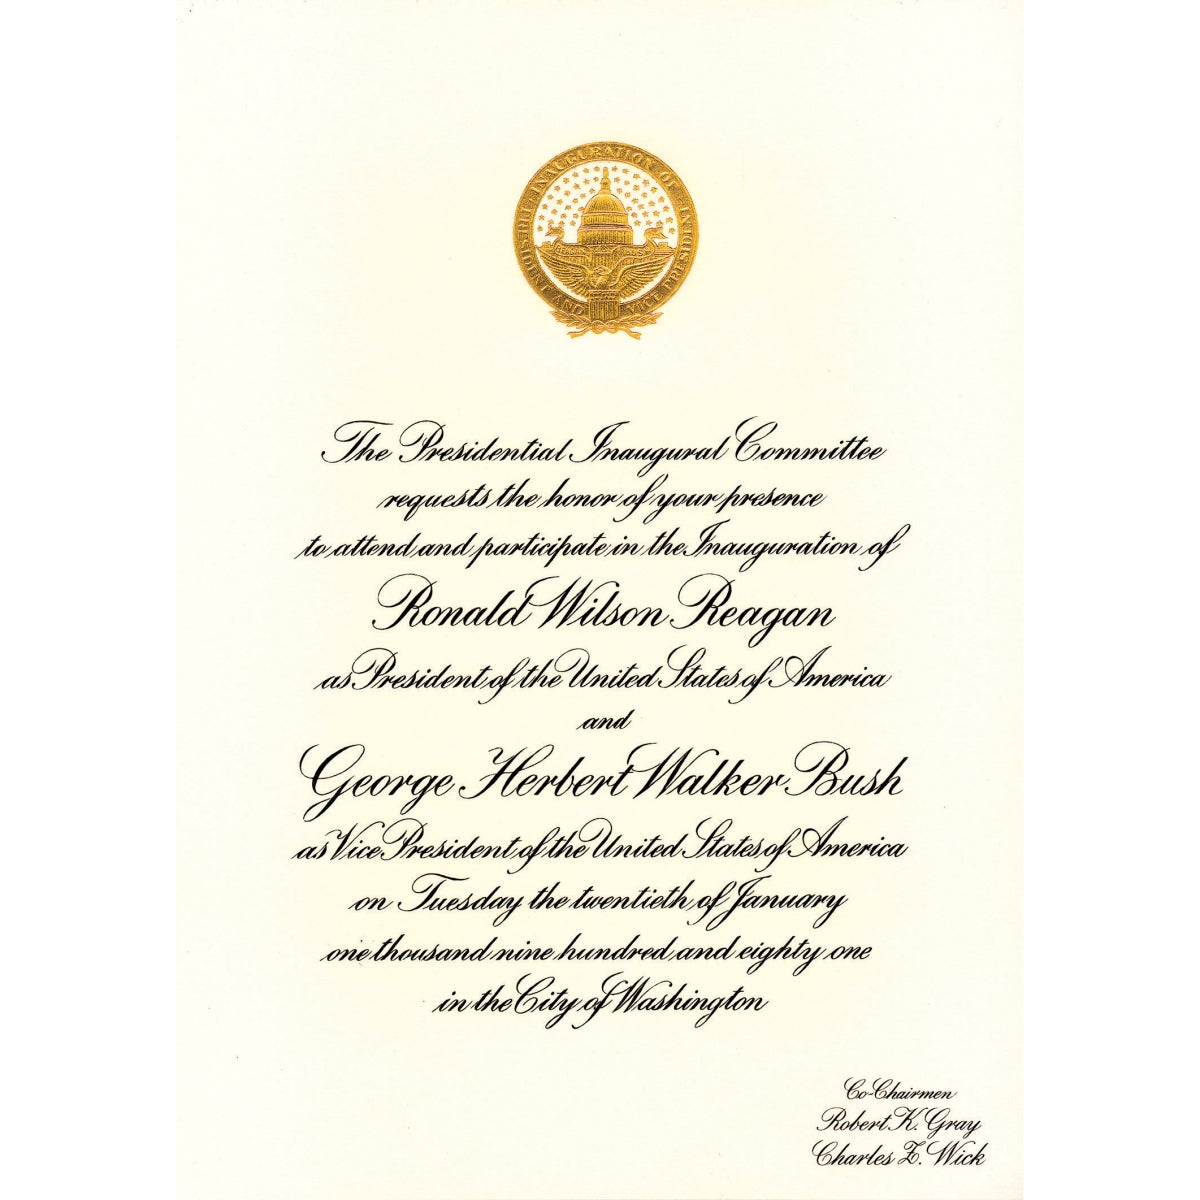 INAUGURATION OF PRESIDENT AND VICE PRESIDENT
The Presidential Inaugural Committee
requests the honor of your presence
to attend and participate in the Inauguration of
Ronald Wilson Reagan
as President of the United States of America
and
George Herbert Walker Bush
as Vice President of the United States of America
on Tuesday the twentieth of January
one thousand nine hundred and eighty one
in the City of Washington
Co-Chairmen
Robert K. Gray
Charles Z. Wick